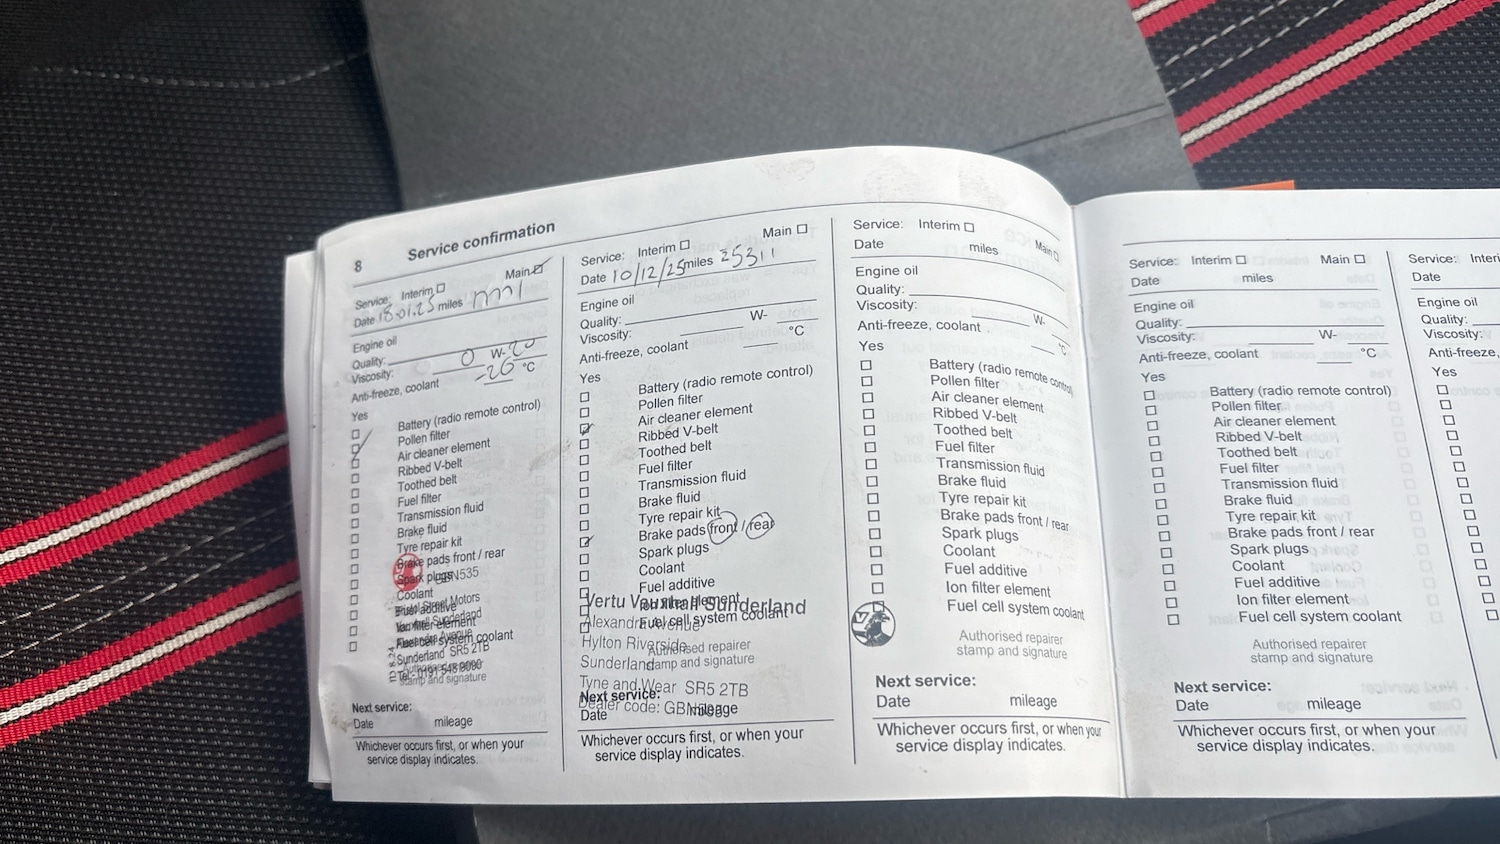 8 Service confirmation
Service: Interim Main
Date 18.01.25 miles
Engine oil
Quality:
Viscosity: 0 W-20
Anti-freeze, coolant -26 °C
Yes
Battery (radio remote control)
Pollen filter
Air cleaner element
Ribbed V-belt
Toothed belt
Fuel filter
Transmission fluid
Brake fluid
Tyre repair kit
Brake pads front / rear
Spark plugs
Coolant
Fuel additive
Ion filter element
Fuel cell system coolant
Bristol Street Motors
Vauxhall Sunderland
Sunderland SR5 2TB
Authorised repairer
stamp and signature
Next service:
Date mileage
Whichever occurs first, or when your
service display indicates.
Service: Interim Main
Date 10/12/25 miles 25311
Engine oil
Quality:
Viscosity: W-
Anti-freeze, coolant °C
Yes
Battery (radio remote control)
Pollen filter
Air cleaner element
Ribbed V-belt
Toothed belt
Fuel filter
Transmission fluid
Brake fluid
Tyre repair kit
Brake pads front / rear
Spark plugs
Coolant
Fuel additive
Ion filter element
Fuel cell system coolant
Vertu Vauxhall Sunderland
Alexandra Avenue
Hylton Riverside
Sunderland
Tyne and Wear SR5 2TB
Dealer code:
Authorised repairer
stamp and signature
Next service:
Date mileage
Whichever occurs first, or when your
service display indicates.
Service: Interim Main
Date miles
Engine oil
Quality:
Viscosity: W-
Anti-freeze, coolant °C
Yes
Battery (radio remote control)
Pollen filter
Air cleaner element
Ribbed V-belt
Toothed belt
Fuel filter
Transmission fluid
Brake fluid
Tyre repair kit
Brake pads front / rear
Spark plugs
Coolant
Fuel additive
Ion filter element
Fuel cell system coolant
Authorised repairer
stamp and signature
Next service:
Date mileage
Whichever occurs first, or when your
service display indicates.
Service: Interim Main
Date miles
Engine oil
Quality:
Viscosity: W-
Anti-freeze, coolant °C
Yes
Battery (radio remote control)
Pollen filter
Air cleaner element
Ribbed V-belt
Toothed belt
Fuel filter
Transmission fluid
Brake fluid
Tyre repair kit
Brake pads front / rear
Spark plugs
Coolant
Fuel additive
Ion filter element
Fuel cell system coolant
Authorised repairer
stamp and signature
Next service:
Date mileage
Whichever occurs first, or when your
service display indicates.
Service: Interi
Date
Engine oil
Quality:
Viscosity:
Anti-freeze,
Yes